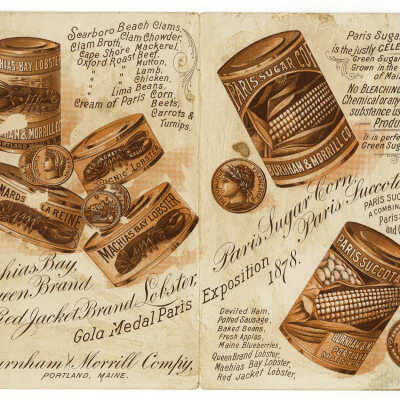 Scarboro Beach Clams,
Clam Broth, Clam Chowder,
Cape Shore Mackerel,
Oxford Roast Beef,
" " Mutton,
" " Lamb,
" " Chicken,
" Lima Beans,
Cream of Paris Corn,
Beets,
Carrots &
Turnips.
MACHIAS BAY LOBSTER
BURNHAM & MORRILL CO
PICNIC LOBSTER
LA REINE
MACHIAS BAY LOBSTER
Machias Bay,
Queen Brand
Red Jacket Brand Lobster,
Gold Medal Paris
Burnham & Morrill Compy,
PORTLAND, MAINE.
Paris Sugar
is the justly CELE
Green Sugar
Grown in the
of Mai
No BLEACHING
Chemical or any
substance is
Produ
It is perfe
Green Suga
PARIS SUGAR CO
BURNHAM & MORRILL CO
Paris Sugar Corn
Paris Succota
PARIS SUC
A COMBINA
Paris
and
Exposition
1878.
Deviled Ham,
Potted Sausage,
Baked Beans,
Fresh Apples,
Maine Blueberries,
Queen Brand Lobster,
Machias Bay Lobster,
Red Jacket Lobster,
PARIS SUCCOT